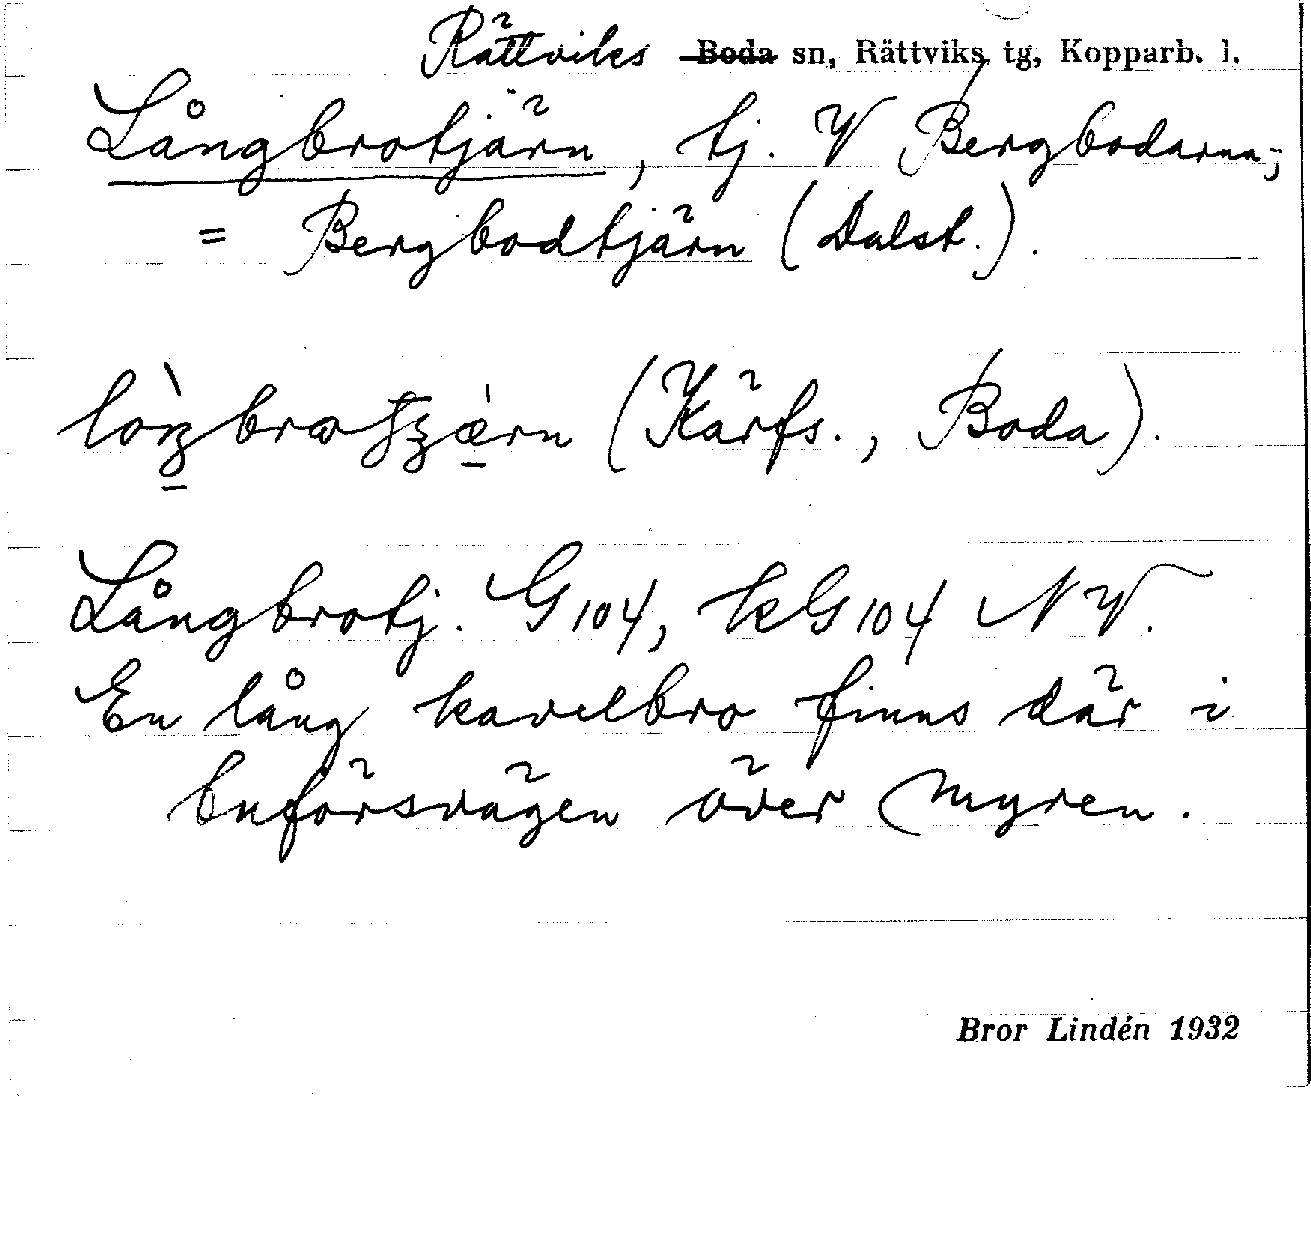 Rättviks ~~Boda~~ sn, Rättviks tg, Kopparb. l.
Långbrotjärn, tj. V Bergbodarna;
= Bergbodtjärn (Dalst.).
(Kärfs., Boda).
Långbrotj. G104, kG104 NV.
En lång kavelbro finns där i
buförsvägen över myren.
Bror Lindén 1932